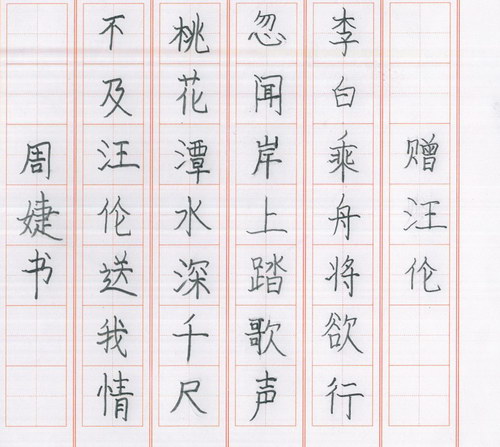 赠汪伦
李白乘舟将欲行
忽闻岸上踏歌声
桃花潭水深千尺
不及汪伦送我情
周婕书